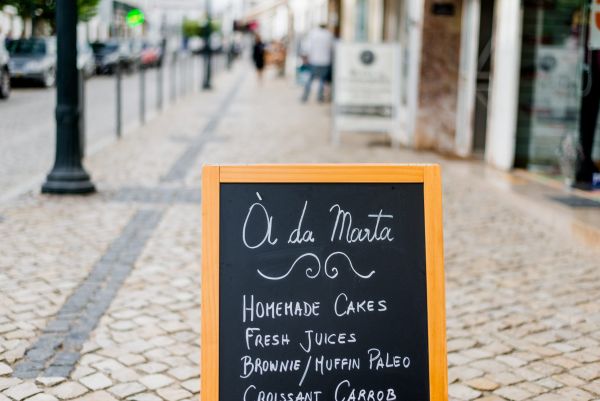 À da Marta
Homemade Cakes
Fresh Juices
Brownie/Muffin Paleo
Croissant Carrob